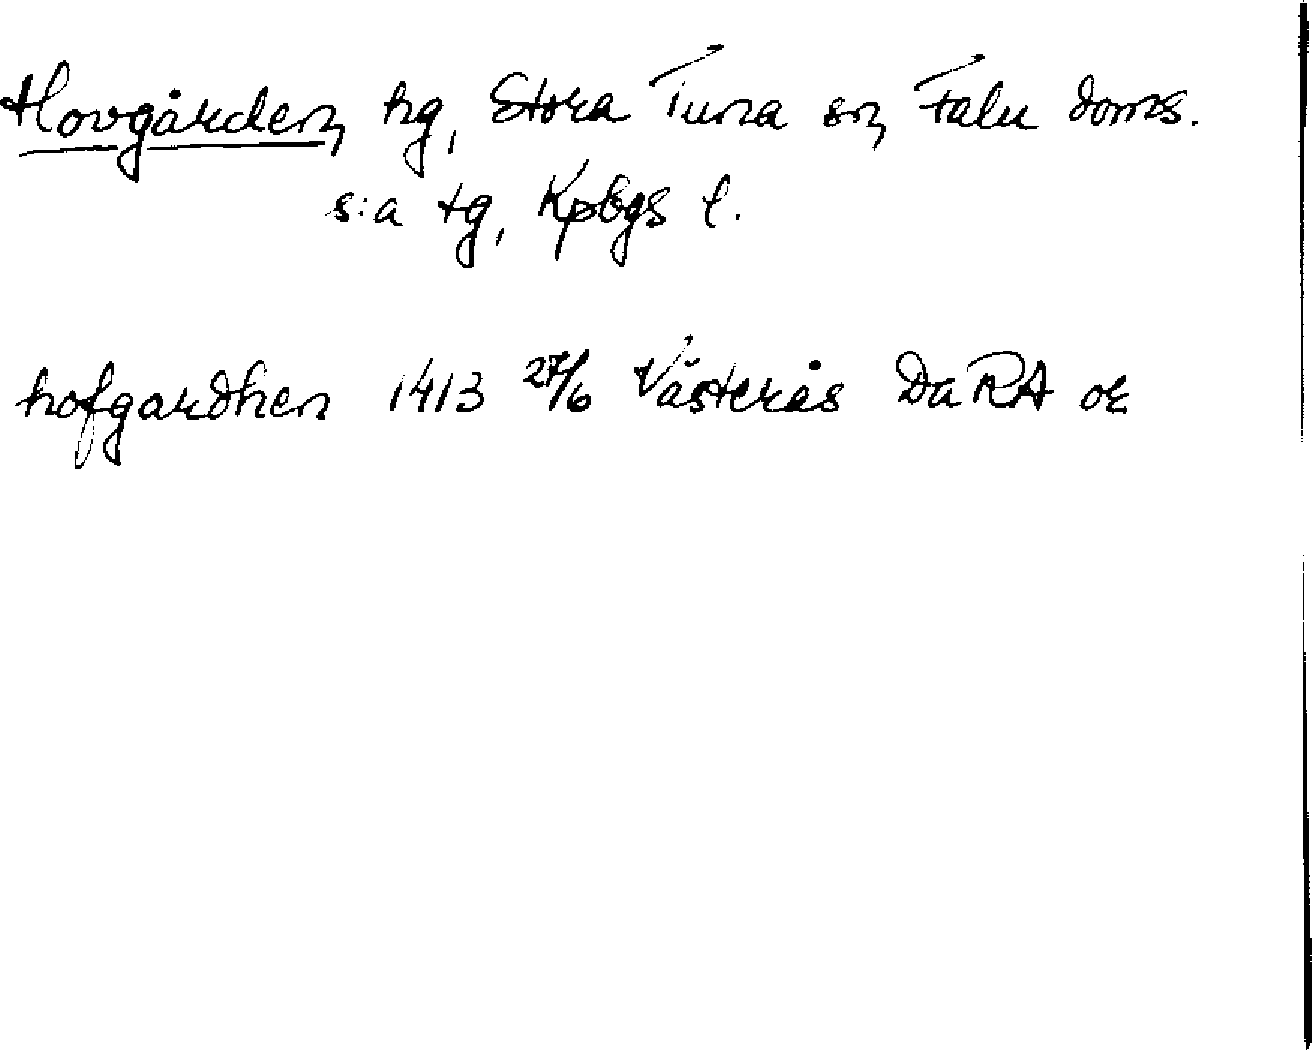 Hovgården, hg, Stora Tuna sn, Falu doms.
s:a tg, Kpbgs l.
hofgardhen 1413 27/6 Västerås Da RA or